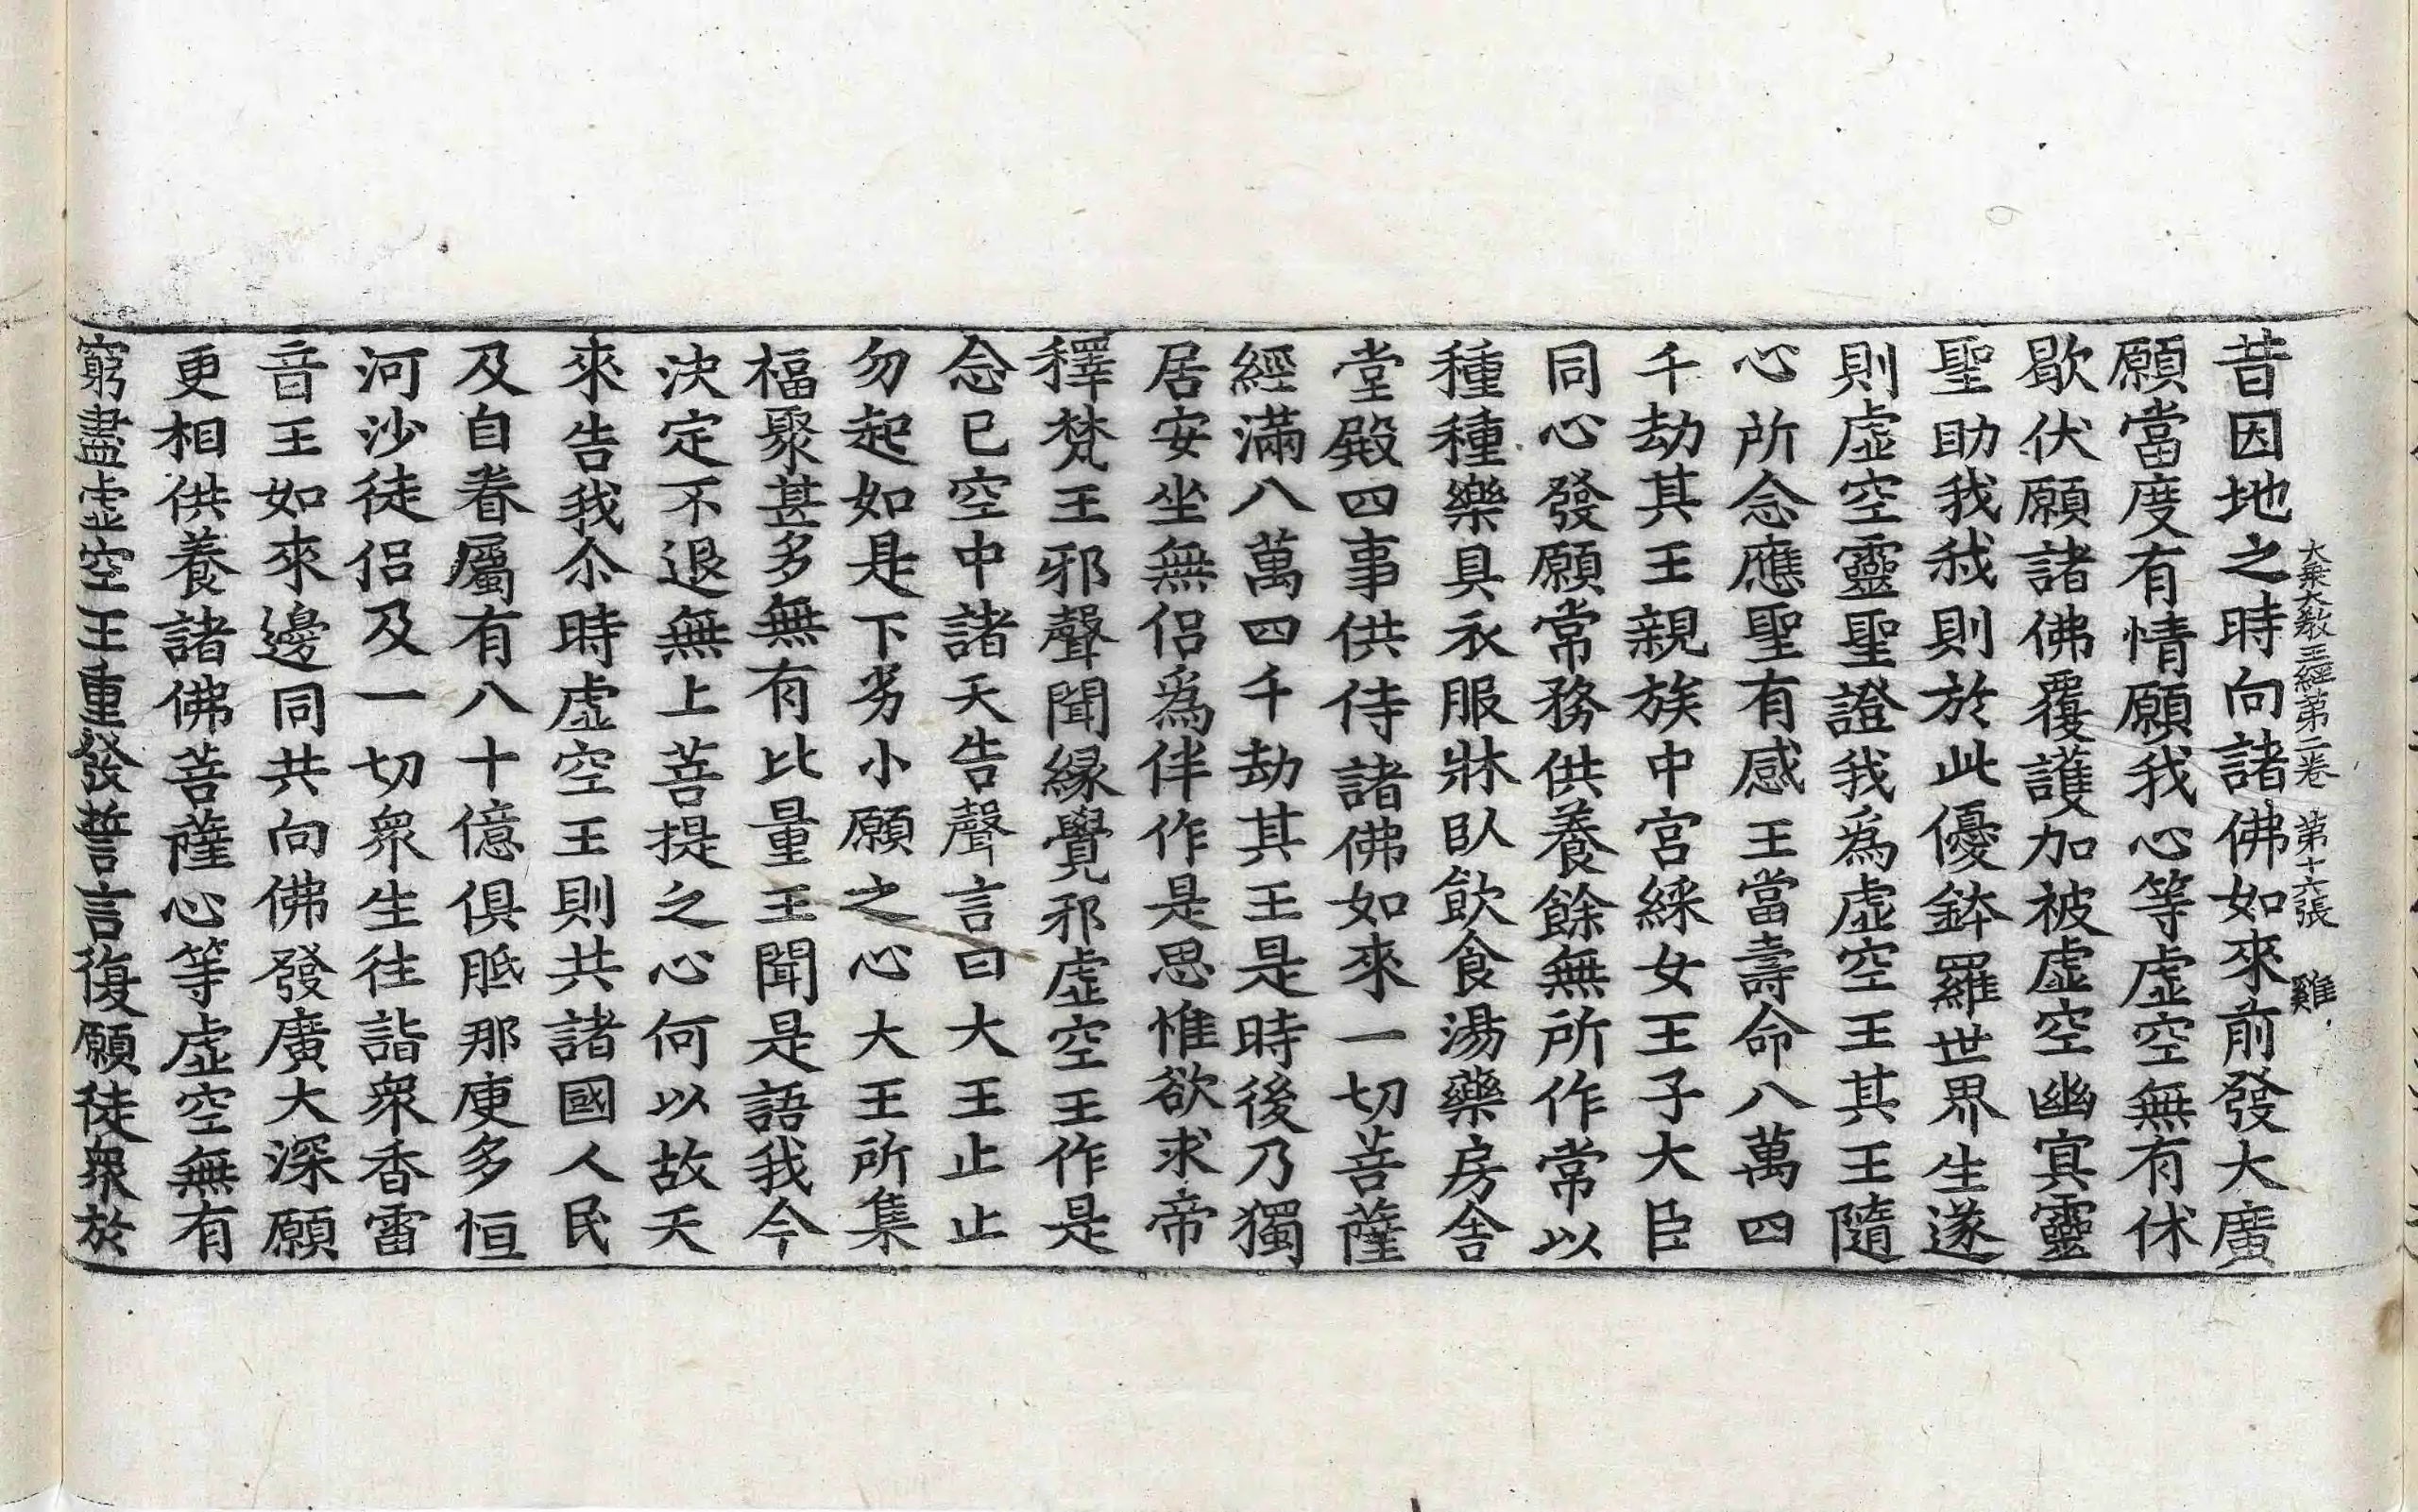 大乘大教王經第二卷 第十六張 雞
昔因地之時向諸佛如來前發大廣
願當度有情願我心等虛空無有休
歇伏願諸佛覆護加被虛空幽冥靈
聖助我我則於此優鉢羅世界生遂
則虛空靈聖證我爲虛空王其王隨
心所念應聖有感王當壽命八萬四
千劫其王親族中宮綵女王子大臣
同心發願常務供養餘無所作常以
種種樂具衣服牀臥飲食湯藥房舍
堂殿四事供侍諸佛如來一切菩薩
經滿八萬四千劫其王是時後乃獨
居安坐無侶爲伴作是思惟欲求帝
釋梵王邪聲聞緣覺邪虛空王作是
念已空中諸天告聲言曰大王止止
勿起如是下劣小願之心大王所集
福聚甚多無有比量王聞是語我今
決定不退無上菩提之心何以故天
來告我尒時虛空王則共諸國人民
及自眷屬有八十億俱胝那庾多恒
河沙徒侶及一切衆生往詣衆香雷
音王如來邊同共向佛發廣大深願
更相供養諸佛菩薩心等虛空無有
窮盡虛空王重發誓言復願徒衆於